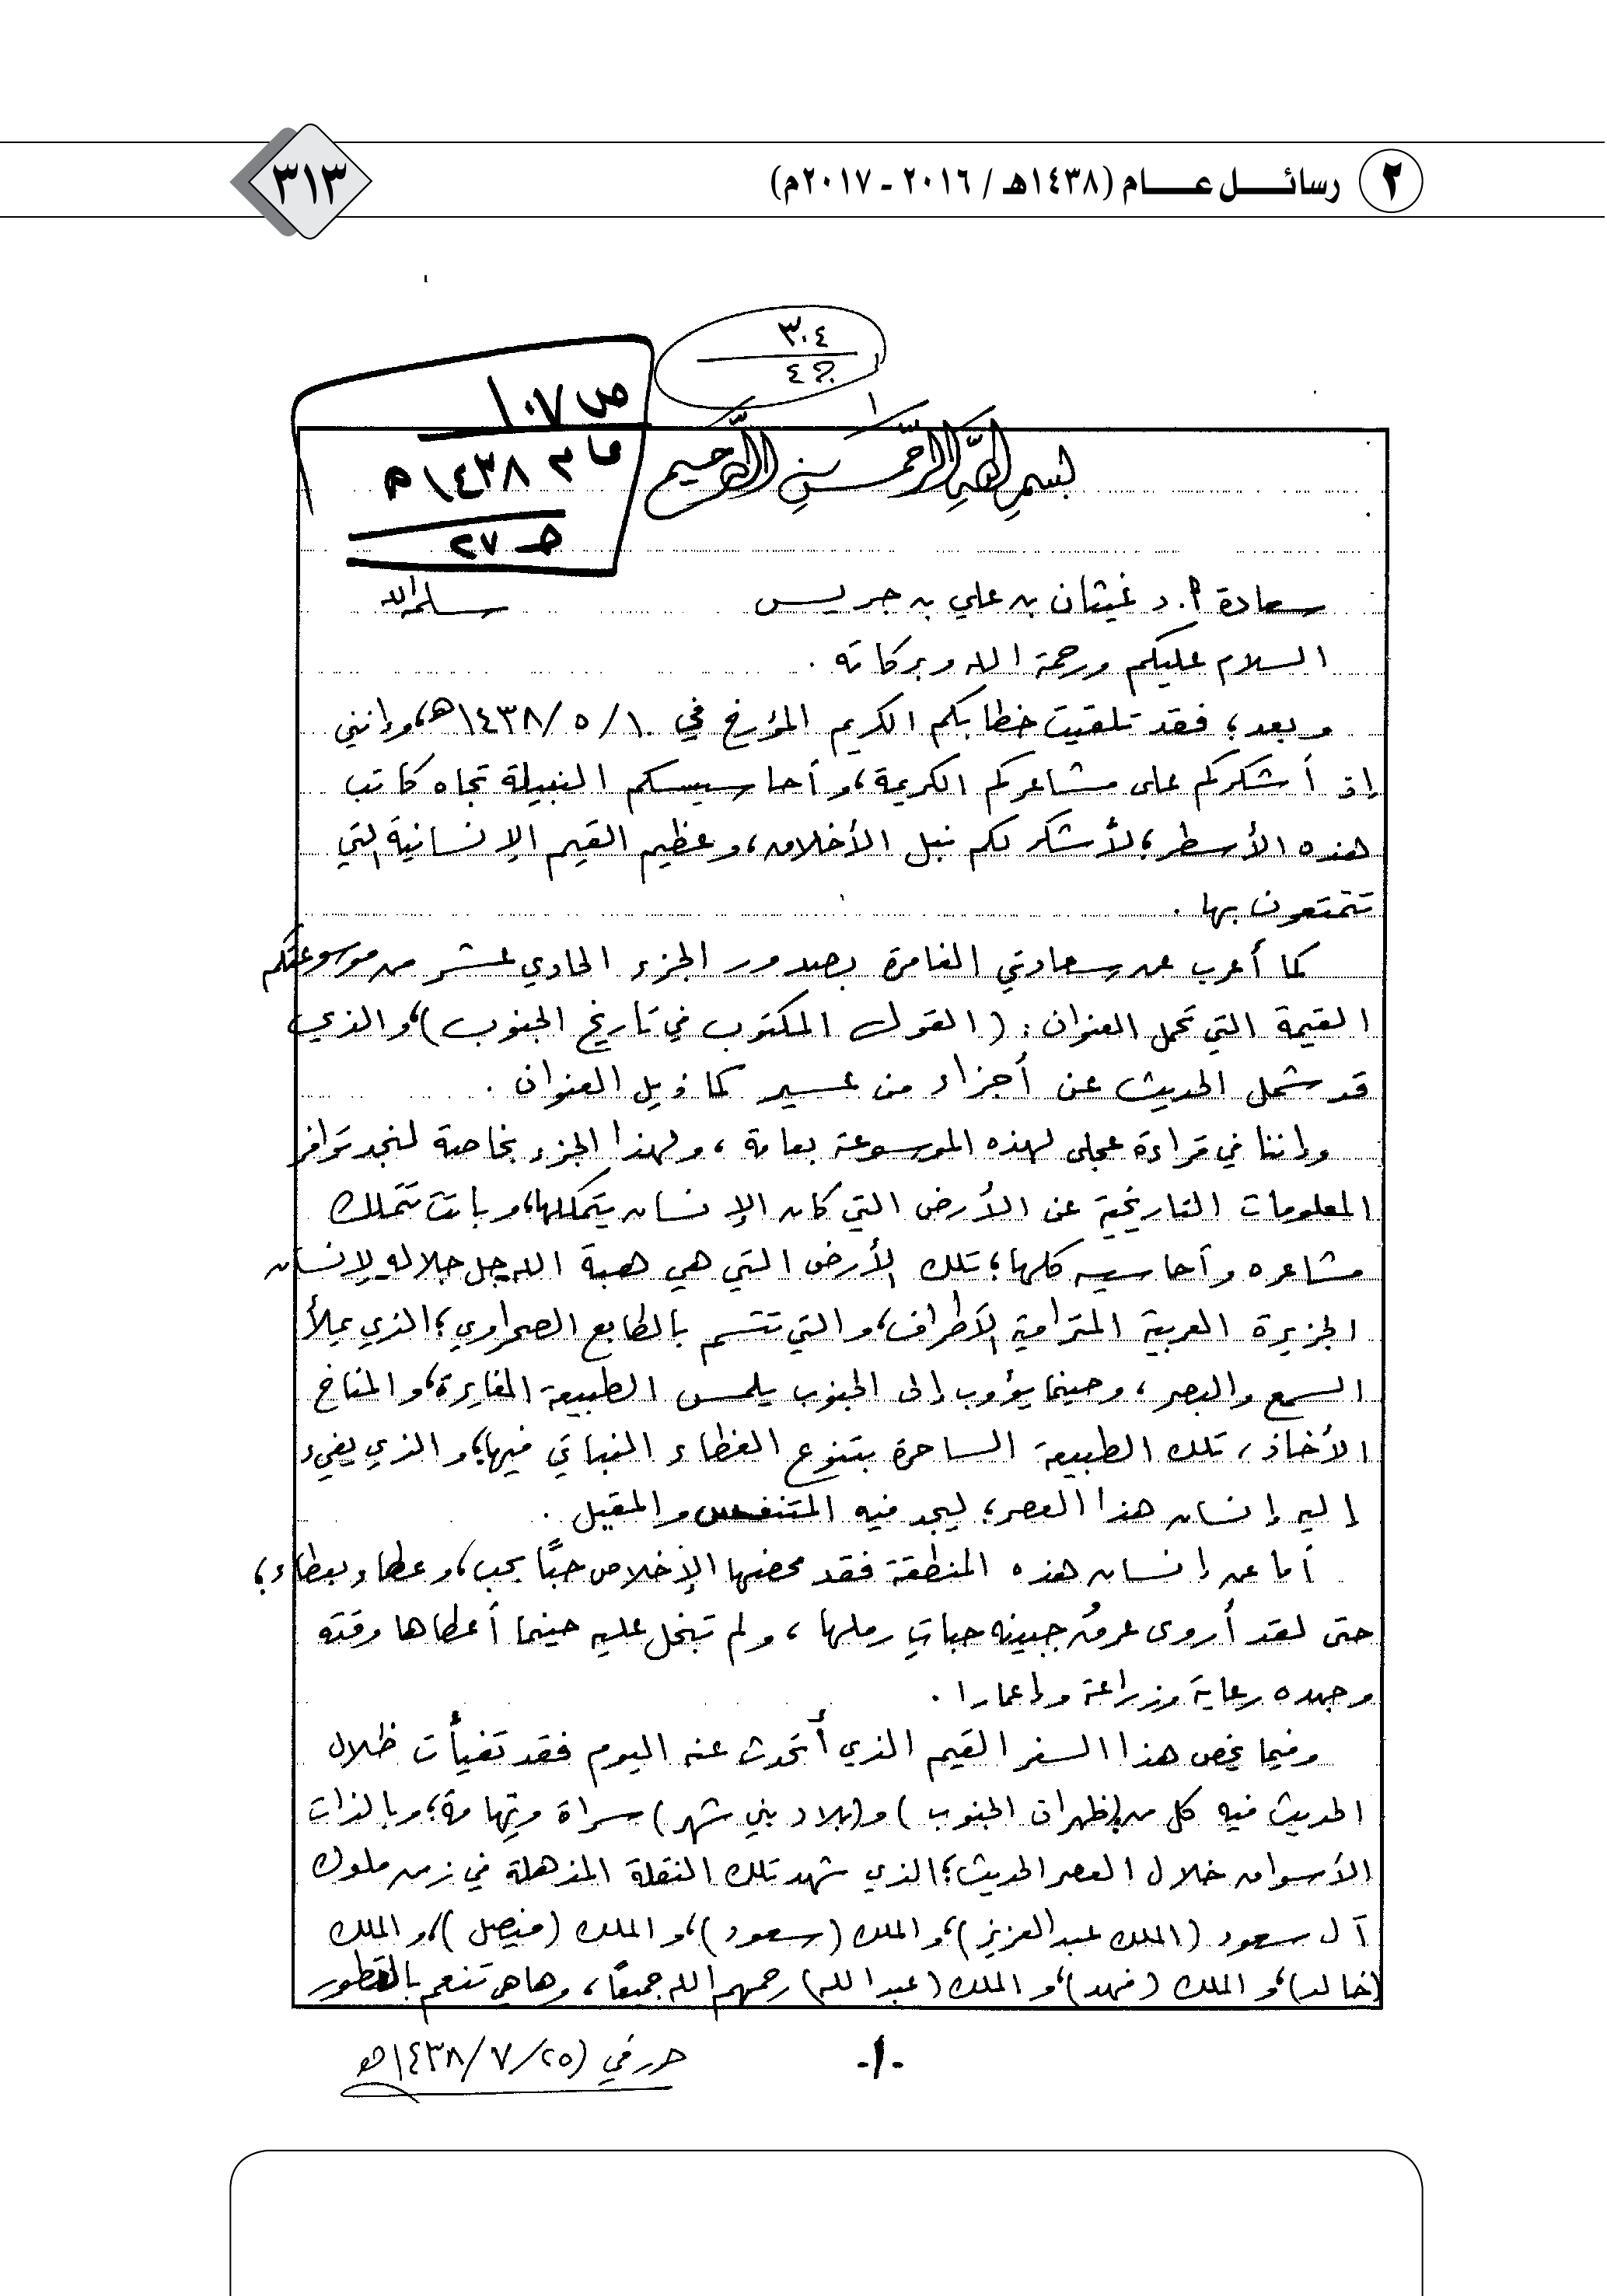 ٢ رسائل عام (١٤٣٨هـ / ٢٠١٦ - ٢٠١٧م)
٣١٣
٣٠٤
ص ١٠٧
عام ١٤٣٨هـ
حـ ٢٧
بسم الله الرحمن الرحيم
سعادة أ.د غيثان بن علي بن جريس سلمه الله
السلام عليكم ورحمة الله وبركاته .
وبعد؛ فقد تلقيت خطابكم الكريم المؤرخ في ١٠/٥/١٤٣٨هـ، وإنني
إذ أشكركم على مشاعركم الكريمة، وأحاسيسكم النبيلة تجاه كاتب
هذه الأسطر؛ لأشكر لكم نبل الأخلاق، وعظيم القيم الإنسانية التي
تتمتعون بها .
كما أعرب عن سعادتي الغامرة بصدور الجزء الحادي عشر من موسوعتكم
القيمة التي تحمل العنوان: (القول المكتوب في تاريخ الجنوب)، والذي
قد شمل الحديث عن أجزاء من عسير كما ذيل العنوان .
وإننا في قراءة عجلى لهذه الموسوعة بعامة ، ولهذا الجزء بخاصة لنجد توافر
المعلومات التاريخية عن الأرض التي كان الإنسان يتملكها، وباتت تتملك
مشاعره وأحاسيسه كلها؛ تلك الأرض التي هي هبة الله جل جلاله لإنسان
الجزيرة العربية المترامية الأطراف، والتي تتسم بالطابع الصحراوي؛ الذي يملأ
السمع والبصر ، وحينما يؤوب إلى الجنوب يلمس الطبيعة المغايرة، والمناخ
الأخاذ ، تلك الطبيعة الساحرة بتنوع الغطاء النباتي فيها، والذي يفيء
إليه إنسان هذا العصر؛ ليجد فيه المتنفس والمقيل .
أما عن إنسان هذه المنطقة فقد محضها الإخلاص حبًا بحب، وعطاء بعطاء؛
حتى لقد أروى عرقُ جبينه حباتِ رملها ، ولم تبخل عليه حينما أعطاها وقته
وجهده رعاية وزراعة وإعمارا .
وفيما يخص هذا السفر القيم الذي أتحدث عنه اليوم فقد تفيأت ظلال
الحديث فيه كل من (ظهران الجنوب) و(بلاد بني شهر) سراة وتهامة؛ وبالذات
الأسواق خلال العصر الحديث؛ الذي شهد تلك النقلة المذهلة في زمن ملوك
آل سعود (الملك عبدالعزيز)، والملك (سعود)، والملك (فيصل)، والملك
(خالد)، والملك (فهد)، والملك (عبدالله) رحمهم الله جميعًا ، وها هي تنعم بالتطور
-١-
حرر في (٢٥/٧/١٤٣٨هـ